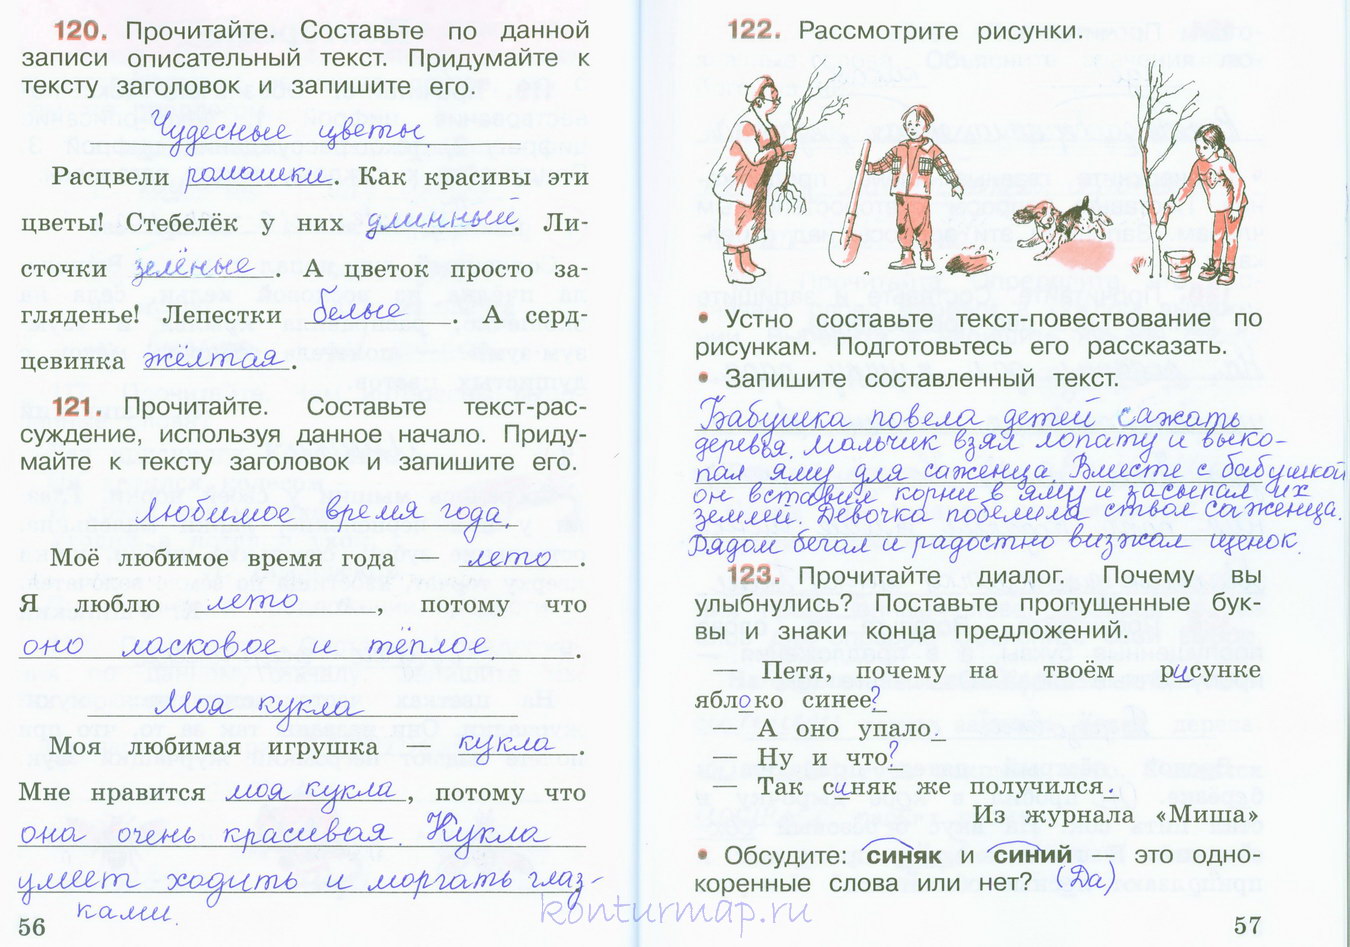 120. Прочитайте. Составьте по данной
записи описательный текст. Придумайте к
тексту заголовок и запишите его.
Чудесные цветы
Расцвели ромашки. Как красивы эти
цветы! Стебелёк у них длинный. Ли-
сточки зелёные. А цветок просто за-
гляденье! Лепестки белые. А серд-
цевинка жёлтая.
121. Прочитайте. Составьте текст-рас-
суждение, используя данное начало. Приду-
майте к тексту заголовок и запишите его.
Любимое время года.
Моё любимое время года — лето.
Я люблю лето, потому что
оно ласковое и тёплое.
Моя кукла
Моя любимая игрушка — кукла.
Мне нравится моя кукла, потому что
она очень красивая. Кукла
умеет ходить и моргать глаз-
ками.
56
122. Рассмотрите рисунки.
• Устно составьте текст-повествование по
рисункам. Подготовьтесь его рассказать.
• Запишите составленный текст.
Бабушка повела детей сажать
деревья. Мальчик взял лопату и выко-
пал яму для саженца. Вместе с бабушкой
он вставил корни в яму и засыпал их
землёй. Девочка побелила ствол саженца.
Рядом бегал и радостно визжал щенок.
123. Прочитайте диалог. Почему вы
улыбнулись? Поставьте пропущенные бук-
вы и знаки конца предложений.
— Петя, почему на твоём рисунке
яблоко синее?
— А оно упало.
— Ну и что?
— Так синяк же получился.
Из журнала «Миша»
• Обсудите: синяк и синий — это одно-
коренные слова или нет? (Да)
57
konturmap.ru